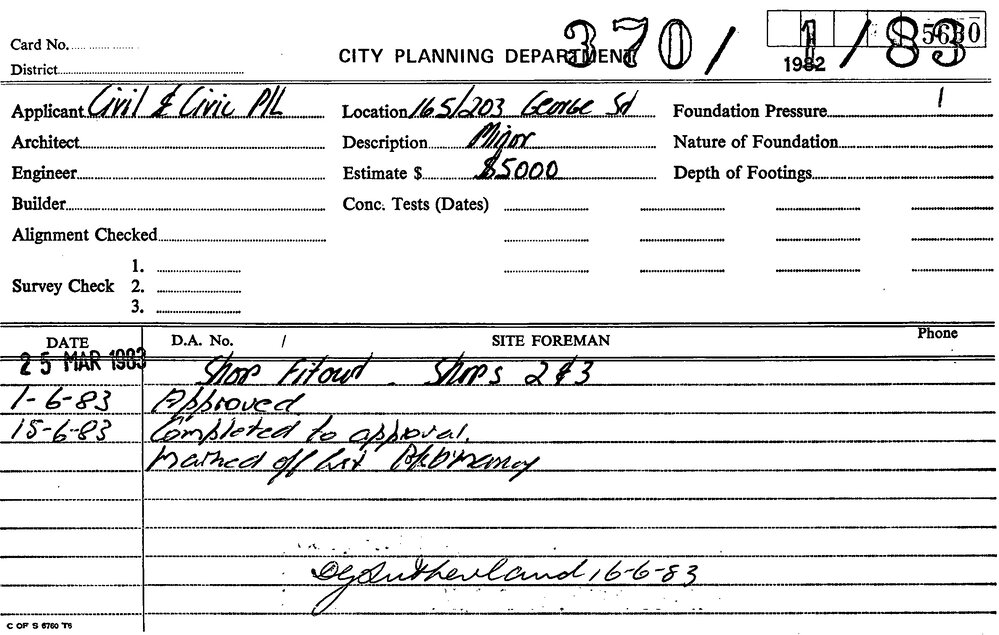 Card No.
District
CITY PLANNING DEPARTMENT
370/1/83
5630
1982
Applicant Civil & Civic P/L
Location 165/203 George St
Foundation Pressure
Architect
Description Minor
Nature of Foundation
Engineer
Estimate $ $5000
Depth of Footings
Builder
Conc. Tests (Dates)
Alignment Checked
Survey Check 1.
2.
3.
DATE D.A. No. / SITE FOREMAN Phone
25 MAR 1983 Shop Fitout. Shops 2&3
1-6-83 Approved
15-6-83 Completed to approval.
Marked off list
Sutherland 16-6-83
C OF S 6760 T6